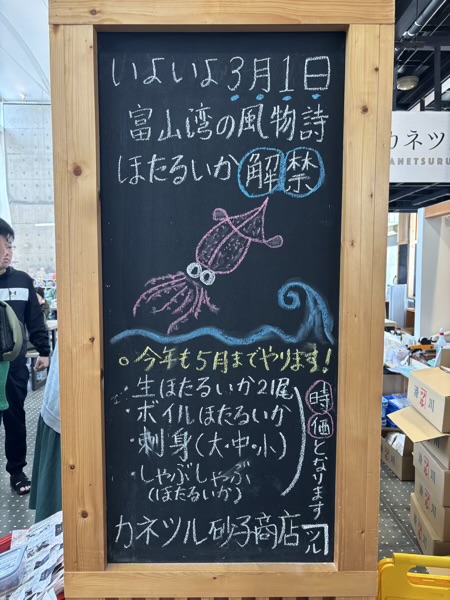 いよいよ3月1日
富山湾の風物詩
ほたるいか解禁
○今年も5月までやります!
・生ほたるいか21尾
・ボイルほたるいか
・刺身(大・中・小)
・しゃぶしゃぶ
(ほたるいか)
時価となります
カネツル砂子商店
カネツ
KANETSURU